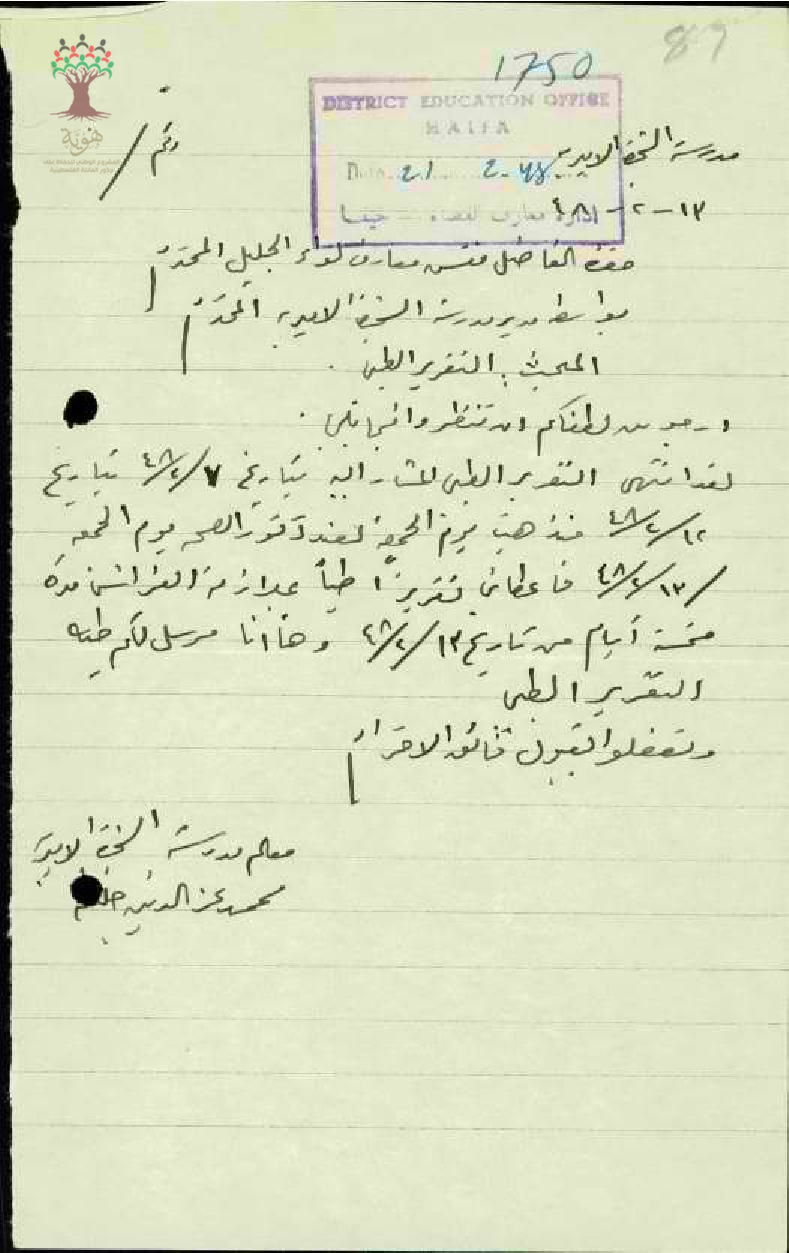 89
1750
DISTRICT EDUCATION OFFICE
HAIFA
Date 21 2-48
ادارة معارف القضاء - حيفا
هوية
رقم /
مدرسة الشجرة الاميرية
١٣-٢-٤٨
حضرة الفاضل مفتش معارف لواء الجليل المحترم
بواسطة مدير مدرسة الشجرة الاميرية المحترم
المبحث: التقرير الطبي.
ارجو من لطفكم ان تنظروا فيما يلي.
لقد انتهى التقرير الطبي المشار اليه بتاريخ ٧/٢/٤٨ بتاريخ
١٢/٢/٤٨ فذهبت يوم الجمعة لعند دكتور الصحه يوم الجمعه
١٣/٢/٤٨ فاعطاني تقريراً طبياً بملازمة الفراش مدة
خمسة أيام من تاريخ ١٣/٢/٤٨ وها أنا مرسل لكم طيه
التقرير الطبي
وتفضلوا بقبول فائق الاحترام
معلم مدرسة الشجرة الاميرية
محمد عز الدين